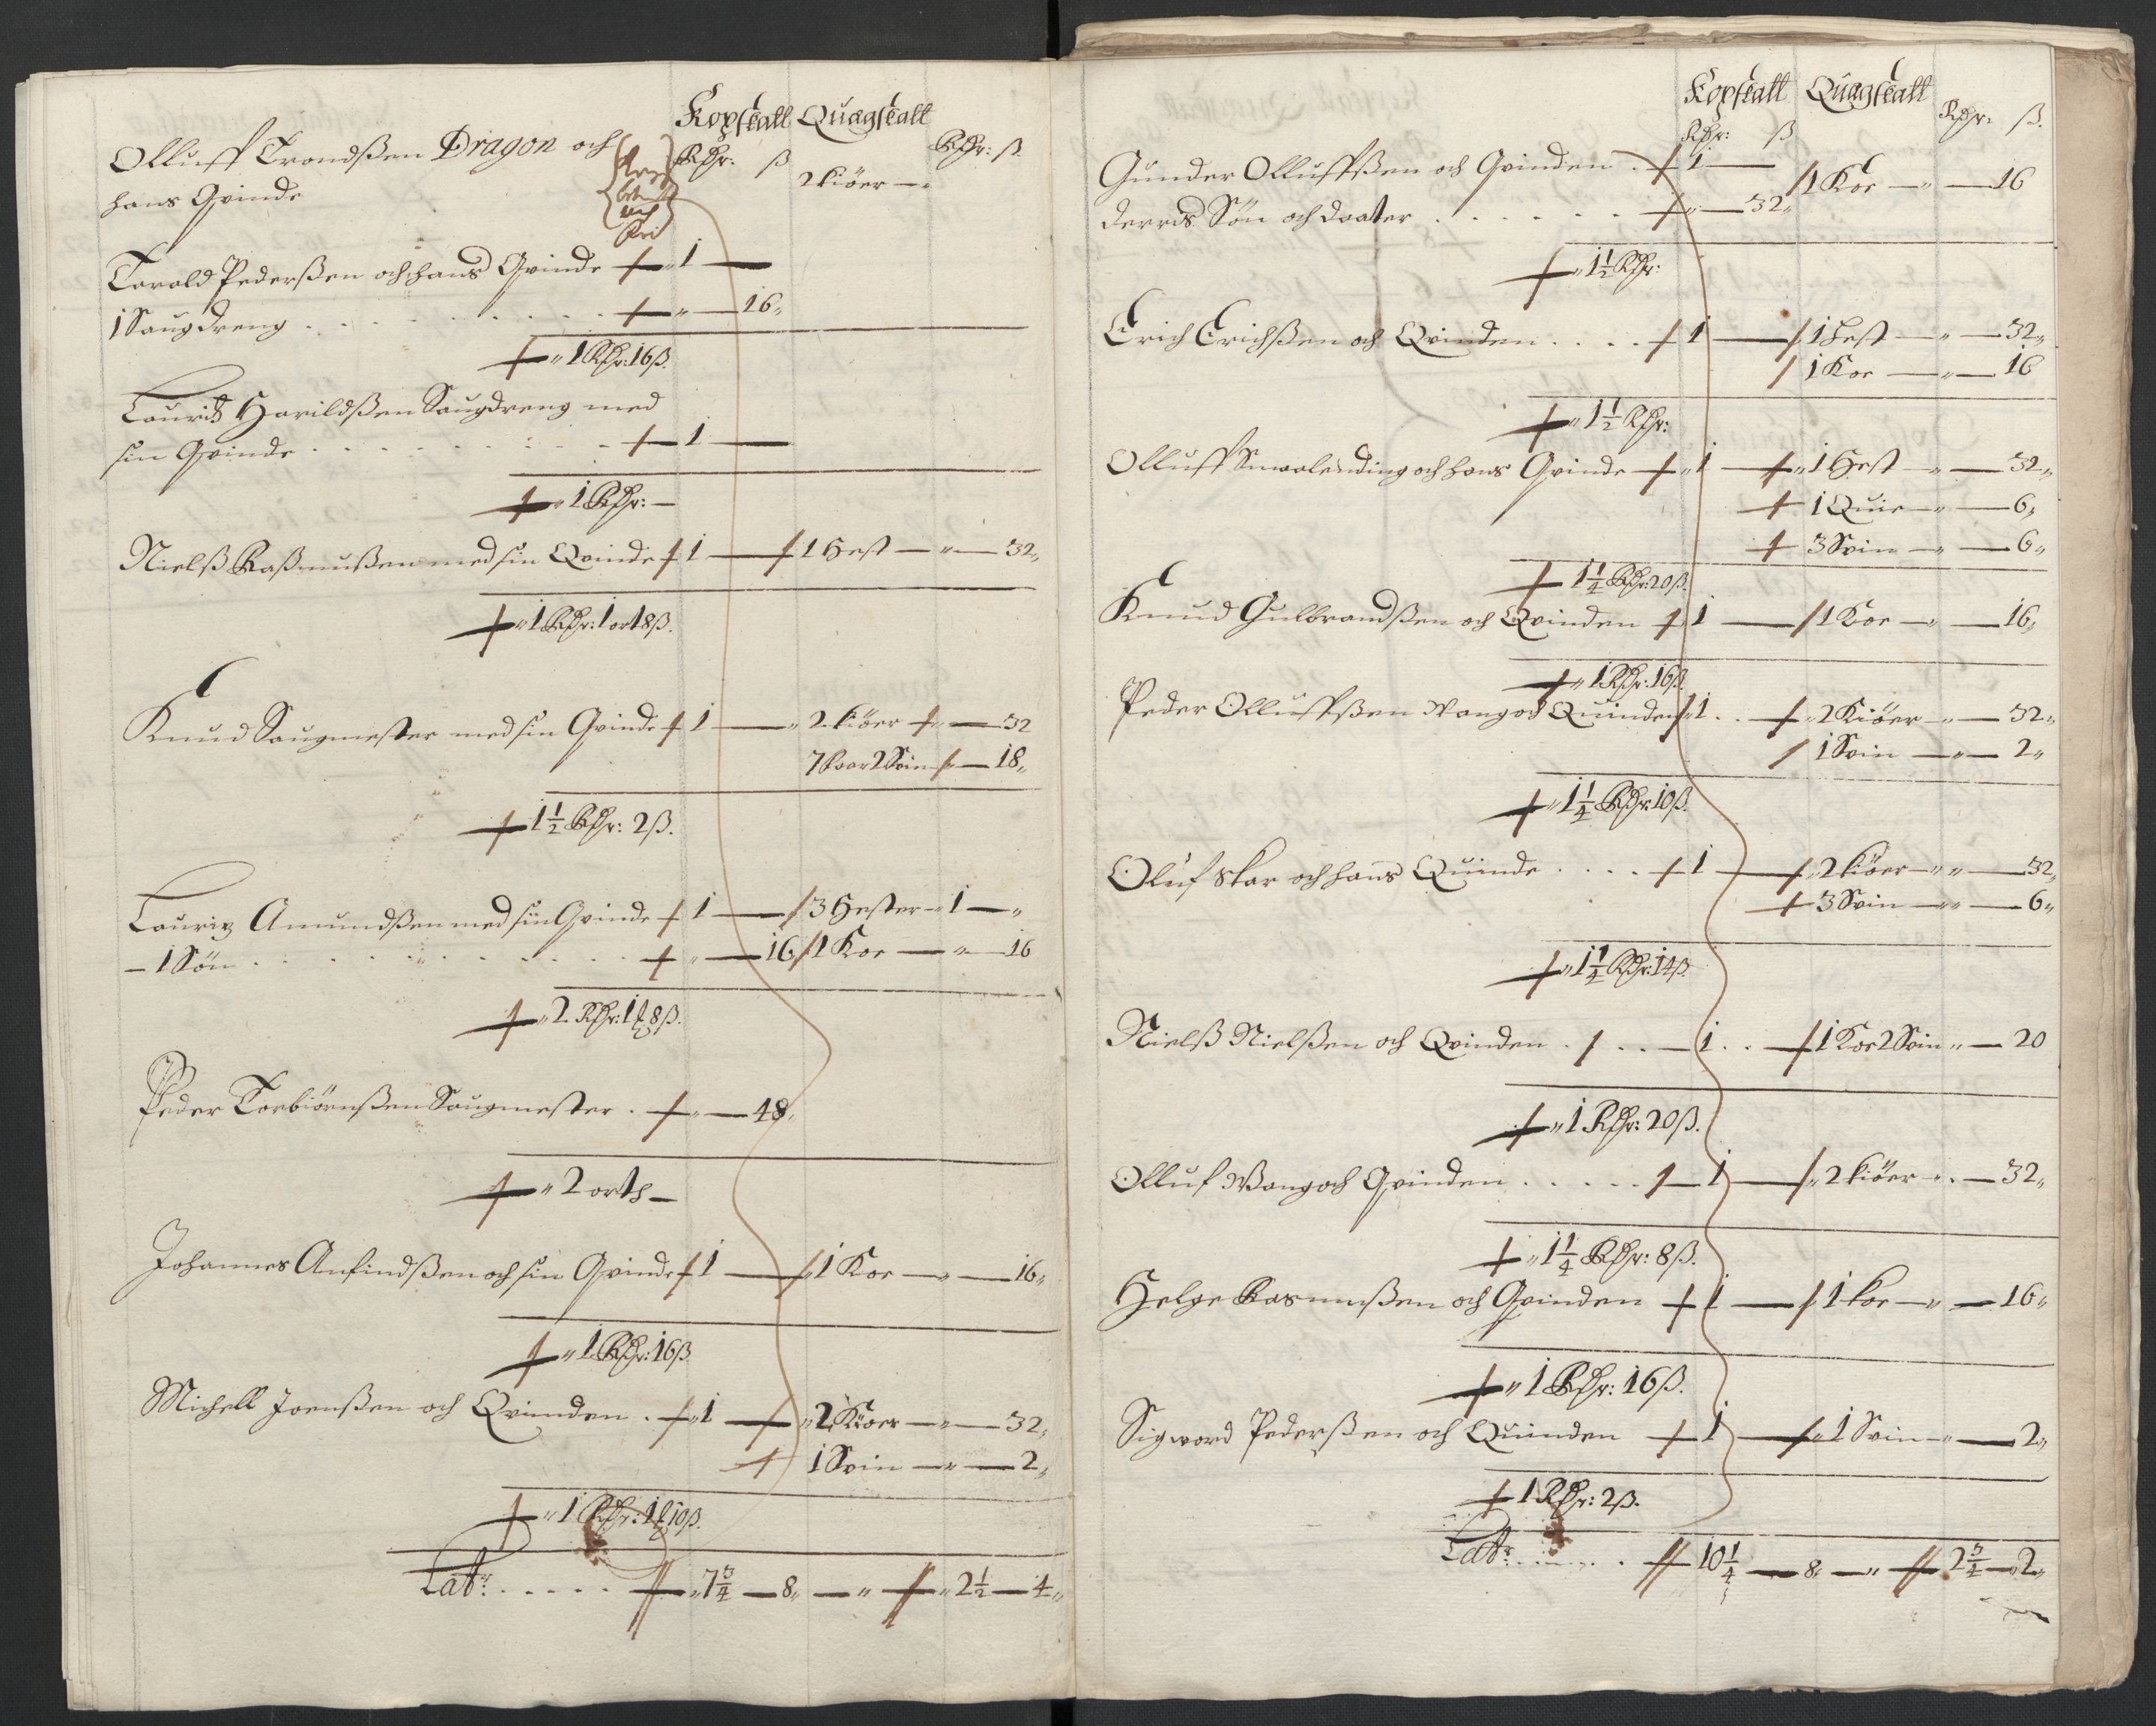 Kopskatt Quægskatt
Rdr: ß Rdr: ß
Olluff Trondßen Dragon och
hans Qvinde 2 kiöer —
fri
Torald Pederßen och hans Qvinde 1 —
1 Saugdreng . . . . . " — 16"
" 1 Rdr: 16 ß.
Lauritz Harildßen Saugdreng med
sin Qvinde . . . . . 1 —
" 1 Rdr: —
Nielß Raßmußen med sin Qvinde 1 — 1 Hest — " — 32"
" 1 Rdr: 1 ort 8 ß.
Knud Saugmester med sin Qvinde 1 — " 2 kiöer " — 32
7 Soer 2 Svin — 18"
1 1/2 Rdr: 2 ß.
Lauriz Amundßen med sin Qvinde 1 — 3 Hester — 1 — "
– 1 Søn . . . . . " — 16 1 Koe — " — 16
" 2 Rdr: 1 8 ß.
Peder Torbiörnßen Saugmester . " — 48"
" 2 orth —
Johannes Anfindßen och sin Qvinde 1 — " 1 Koe — " — 16"
" 1 Rdr: 16 ß
Michell Joenßen och Qvinden . " 1 — " 2 Kiöer — " — 32"
1 Svin — " — 2"
" 1 Rdr: 1 10 ß.
Latr: . . . . . " 7 3/4 — 8" — " — " 2 1/2 — 4"
Kopskatt Quægskatt
Rdr: ß Rdr: ß.
Gunder Olluffßen och Qvinden . 1 —
1 Koe — " — 16
derris Søn och daater . . . . . " — 32"
" 1 1/2 Rdr:
Erich Erichßen och Qvinden . . . . 1 — 1 Hest — " — 32"
1 Koe — " — 16
" 1 1/2 Rdr:
Olluff Smaalending och hans Qvinde " 1 — " 1 Hest — " — 32"
1 Quie — " — 6"
3 Svin — " — 6"
1 1/4 Rdr: 20 ß.
Knud Gulbrandßen och Qvinden 1 — 1 Koe — " — 16"
" 1 Rdr: 16 ß.
Peder Olluffßen Wang och Quinden " 1 . . " 2 Kiöer — " — 32"
1 Svin — " — 2"
" 1 1/4 Rdr: 10 ß.
Oluf Skar och hans Quinde . . . . 1 — " 2 kiöer — " " — 32"
3 Svin — " — 6"
" 1 1/4 Rdr: 14 ß.
Nielß Nielßen och Qvinden . . . — 1 . . 1 Koe 2 Svin " — 20
" 1 Rdr: 20 ß.
Olluf Wang och Qvinden . . . . . 1 — " 2 kiöer — " . — 32"
" 1 1/4 Rdr: 8 ß.
Helge Rasmußen och Qvinden 1 — 1 koe — " — 16"
" 1 Rdr: 16 ß.
Sigword Pederßen och Quinden 1 — " 1 Svin — " — 2"
1 Rdr: 2 ß.
Latr: . . . . . 10 1/4 — 8" — " — 2 3/4 — 2"